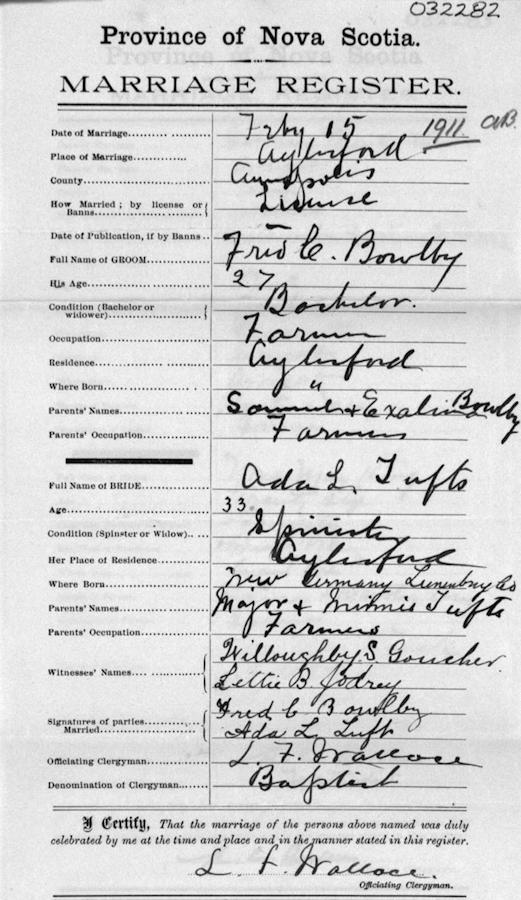 032282
Province of Nova Scotia.
MARRIAGE REGISTER.
Date of Marriage Feby 15 1911 AB.
Place of Marriage Aylesford
County Annapolis
How Married; by license or Banns License
Date of Publication, if by Banns —
Full Name of GROOM Fred C. Bowlby
His Age 27
Condition (Bachelor or widower) Bachelor.
Occupation Farmer
Residence Aylesford
Where Born "
Parents' Names Samuel & Exalina Bowlby
Parents' Occupation Farmers
Full Name of BRIDE Ada L. Tufts
Age 33.
Condition (Spinster or Widow) Spinster
Her Place of Residence Aylesford
Where Born New Germany Lunenburg Co
Parents' Names Major & Minnie Tufts
Parents' Occupation Farmers
Witnesses' Names Willoughby S. Goucher.
Lettie B. Jodrey
Signatures of parties Married Fred C Bowlby
Ada L. Tufts
Officiating Clergyman L. F. Wallace
Denomination of Clergyman Baptist
I Certify, That the marriage of the persons above named was duly
celebrated by me at the time and place and in the manner stated in this register.
L. F. Wallace.
Officiating Clergyman.